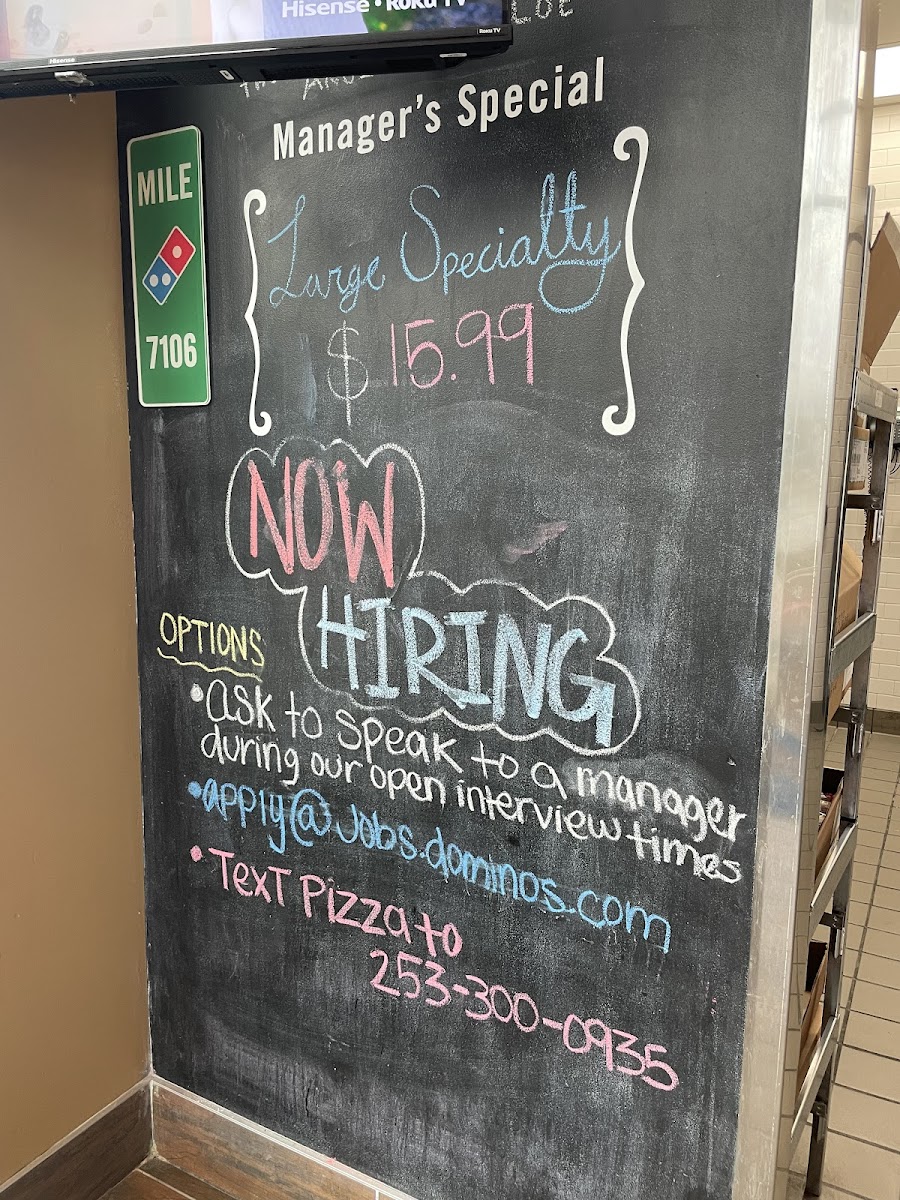 Hisense • Roku TV
Hisense
Roku TV
Manager's Special
Large Specialty
$15.99
MILE
7106
NOW
HIRING
OPTIONS
• ask to speak to a manager
during our open interview times
• apply@Jobs.dominos.com
• Text Pizza to
253-300-0935